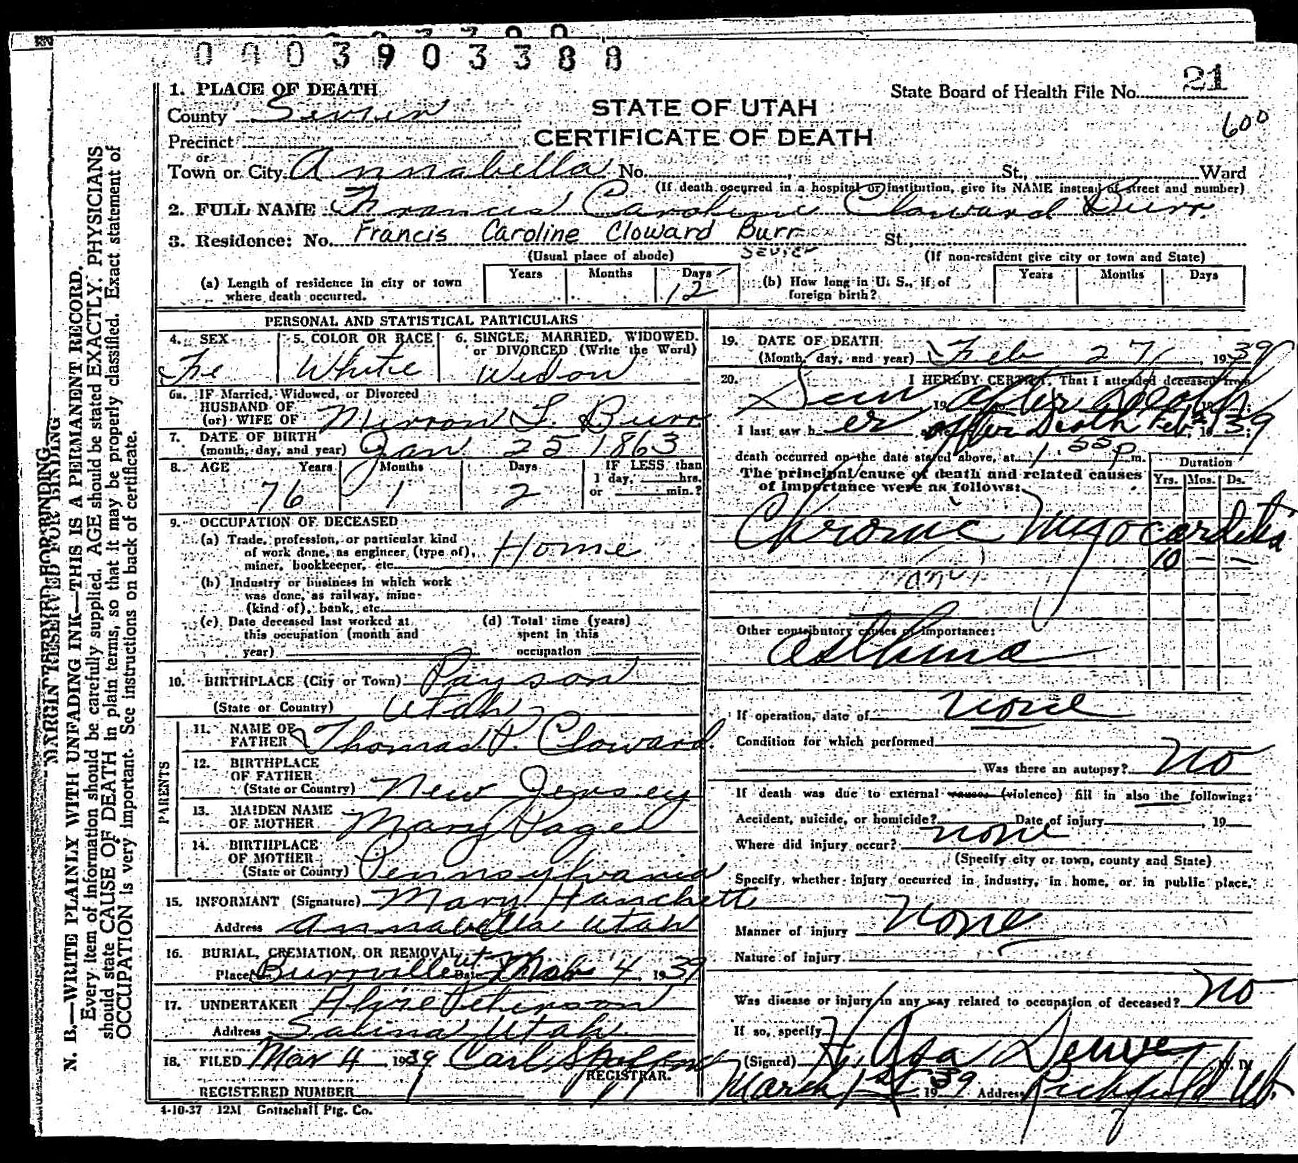 0003903388
1. PLACE OF DEATH
State Board of Health File No. 21
County Sevier
STATE OF UTAH
600
Precinct
CERTIFICATE OF DEATH
or
Town or City Annabella No. St., Ward
(If death occurred in a hospital or institution, give its NAME instead of street and number)
2. FULL NAME Francis Caroline Cloward Burr
3. Residence: No. Francis Caroline Cloward Burr St.
(Usual place of abode) Sevier (If non-resident give city or town and State)
(a) Length of residence in city or town where death occurred. Years Months Days 12
(b) How long in U. S., if of foreign birth? Years Months Days
PERSONAL AND STATISTICAL PARTICULARS
4. SEX Fe
5. COLOR OR RACE White
6. SINGLE, MARRIED, WIDOWED, or DIVORCED (Write the Word) Widow
6a. IF Married, Widowed, or Divorced
HUSBAND OF
(or) WIFE OF Mirron L. Burr
7. DATE OF BIRTH
(month, day, and year) Jan 25 1863
8. AGE Years Months Days IF LESS than
76 1 2 1 day, hrs.
or min.?
9. OCCUPATION OF DECEASED
(a) Trade, profession, or particular kind
of work done, as engineer, (type of),
miner, bookkeeper, etc. Home
(b) Industry or business in which work
was done, as railway, mine
(kind of), bank, etc.
(c) Date deceased last worked at
this occupation (month and
year)
(d) Total time (years)
spent in this
occupation
10. BIRTHPLACE (City or Town) Payson
(State or Country) Utah
PARENTS
11. NAME OF
FATHER Thomas P. Cloward
12. BIRTHPLACE
OF FATHER
(State or Country) New Jersey
13. MAIDEN NAME
OF MOTHER Mary Page
14. BIRTHPLACE
OF MOTHER
(State or County) Pennsylvania
15. INFORMANT (Signature) Mary Hanchett
Address Annabella Utah
16. BURIAL, CREMATION, OR REMOVAL
Place Burrville Ut Date Mar 4 1939
17. UNDERTAKER Peterson
Address Salina Utah
18. FILED Mar 4 1939 Carl
REGISTRAR.
REGISTERED NUMBER 1
4-10-37 12M Gottschall Ptg. Co.
19. DATE OF DEATH
(Month, day, and year) Feb 27 1939
20. I HEREBY CERTIFY, That I attended deceased from
Seen 19 after death
I last saw her after death Feb 1939
death occurred on the date stated above, at 1:55 P.m.
The principal cause of death and related causes
of importance were as follows:
Duration
Yrs. Mos. Ds.
Chronic Myocarditis
10 — —
and
Other contributory causes of importance:
asthma
If operation, date of none
Condition for which performed
Was there an autopsy? No
If death was due to external causes (violence) fill in also the following:
Accident, suicide, or homicide? Date of injury 19
Where did injury occur? none
(Specify city or town, county and State)
Specify, whether injury occurred in industry, in home, or in public place.
Manner of injury None
Nature of injury
Was disease or injury in any way related to occupation of deceased? No
If so, specify
(Signed) H. Asa Dewey M. D.
March 1st 1939 Address Richfield Ut.
N. B.—WRITE PLAINLY WITH UNFADING INK—THIS IS A PERMANENT RECORD.
Every item of information should be carefully supplied. AGE should be stated EXACTLY. PHYSICIANS
should state CAUSE OF DEATH in plain terms, so that it may be properly classified. Exact statement of
OCCUPATION is very important. See instructions on back of certificate.
MARGIN RESERVED FOR BINDING